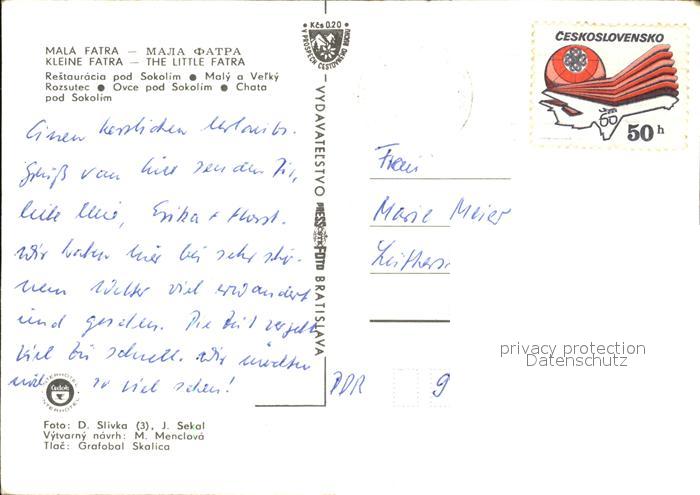 MALÁ FATRA — МАЛА ФАТРА
KLEINE FATRA — THE LITTLE FATRA
Reštaurácia pod Sokolím ● Malý a Veľký
Rozsutec ● Ovce pod Sokolím ● Chata
pod Sokolím
Einen herzlichen Urlaubs-
gruß von hier senden Dir,
liebe Erika + Horst.
Wir haben hier bei sehr schö-
nem Wetter viel erwandert
und gesehen. Die Zeit vergeht
viel zu schnell. Wir möchten
noch so viel sehen!
INTERHOTEL
Čedok
INTERHOTEL
Foto: D. Slivka (3), J. Sekal
Výtvarný návrh: M. Menclová
Tlač: Grafobal Skalica
Kčs 0.20
V PROSPECH CESTOVNÉHO RUCHU
VYDAVATEĽSTVO PRESSFOTO BRATISLAVA
ČESKOSLOVENSKO
50 h
Frau
Marie Meier
DDR 9
privacy protection
Datenschutz